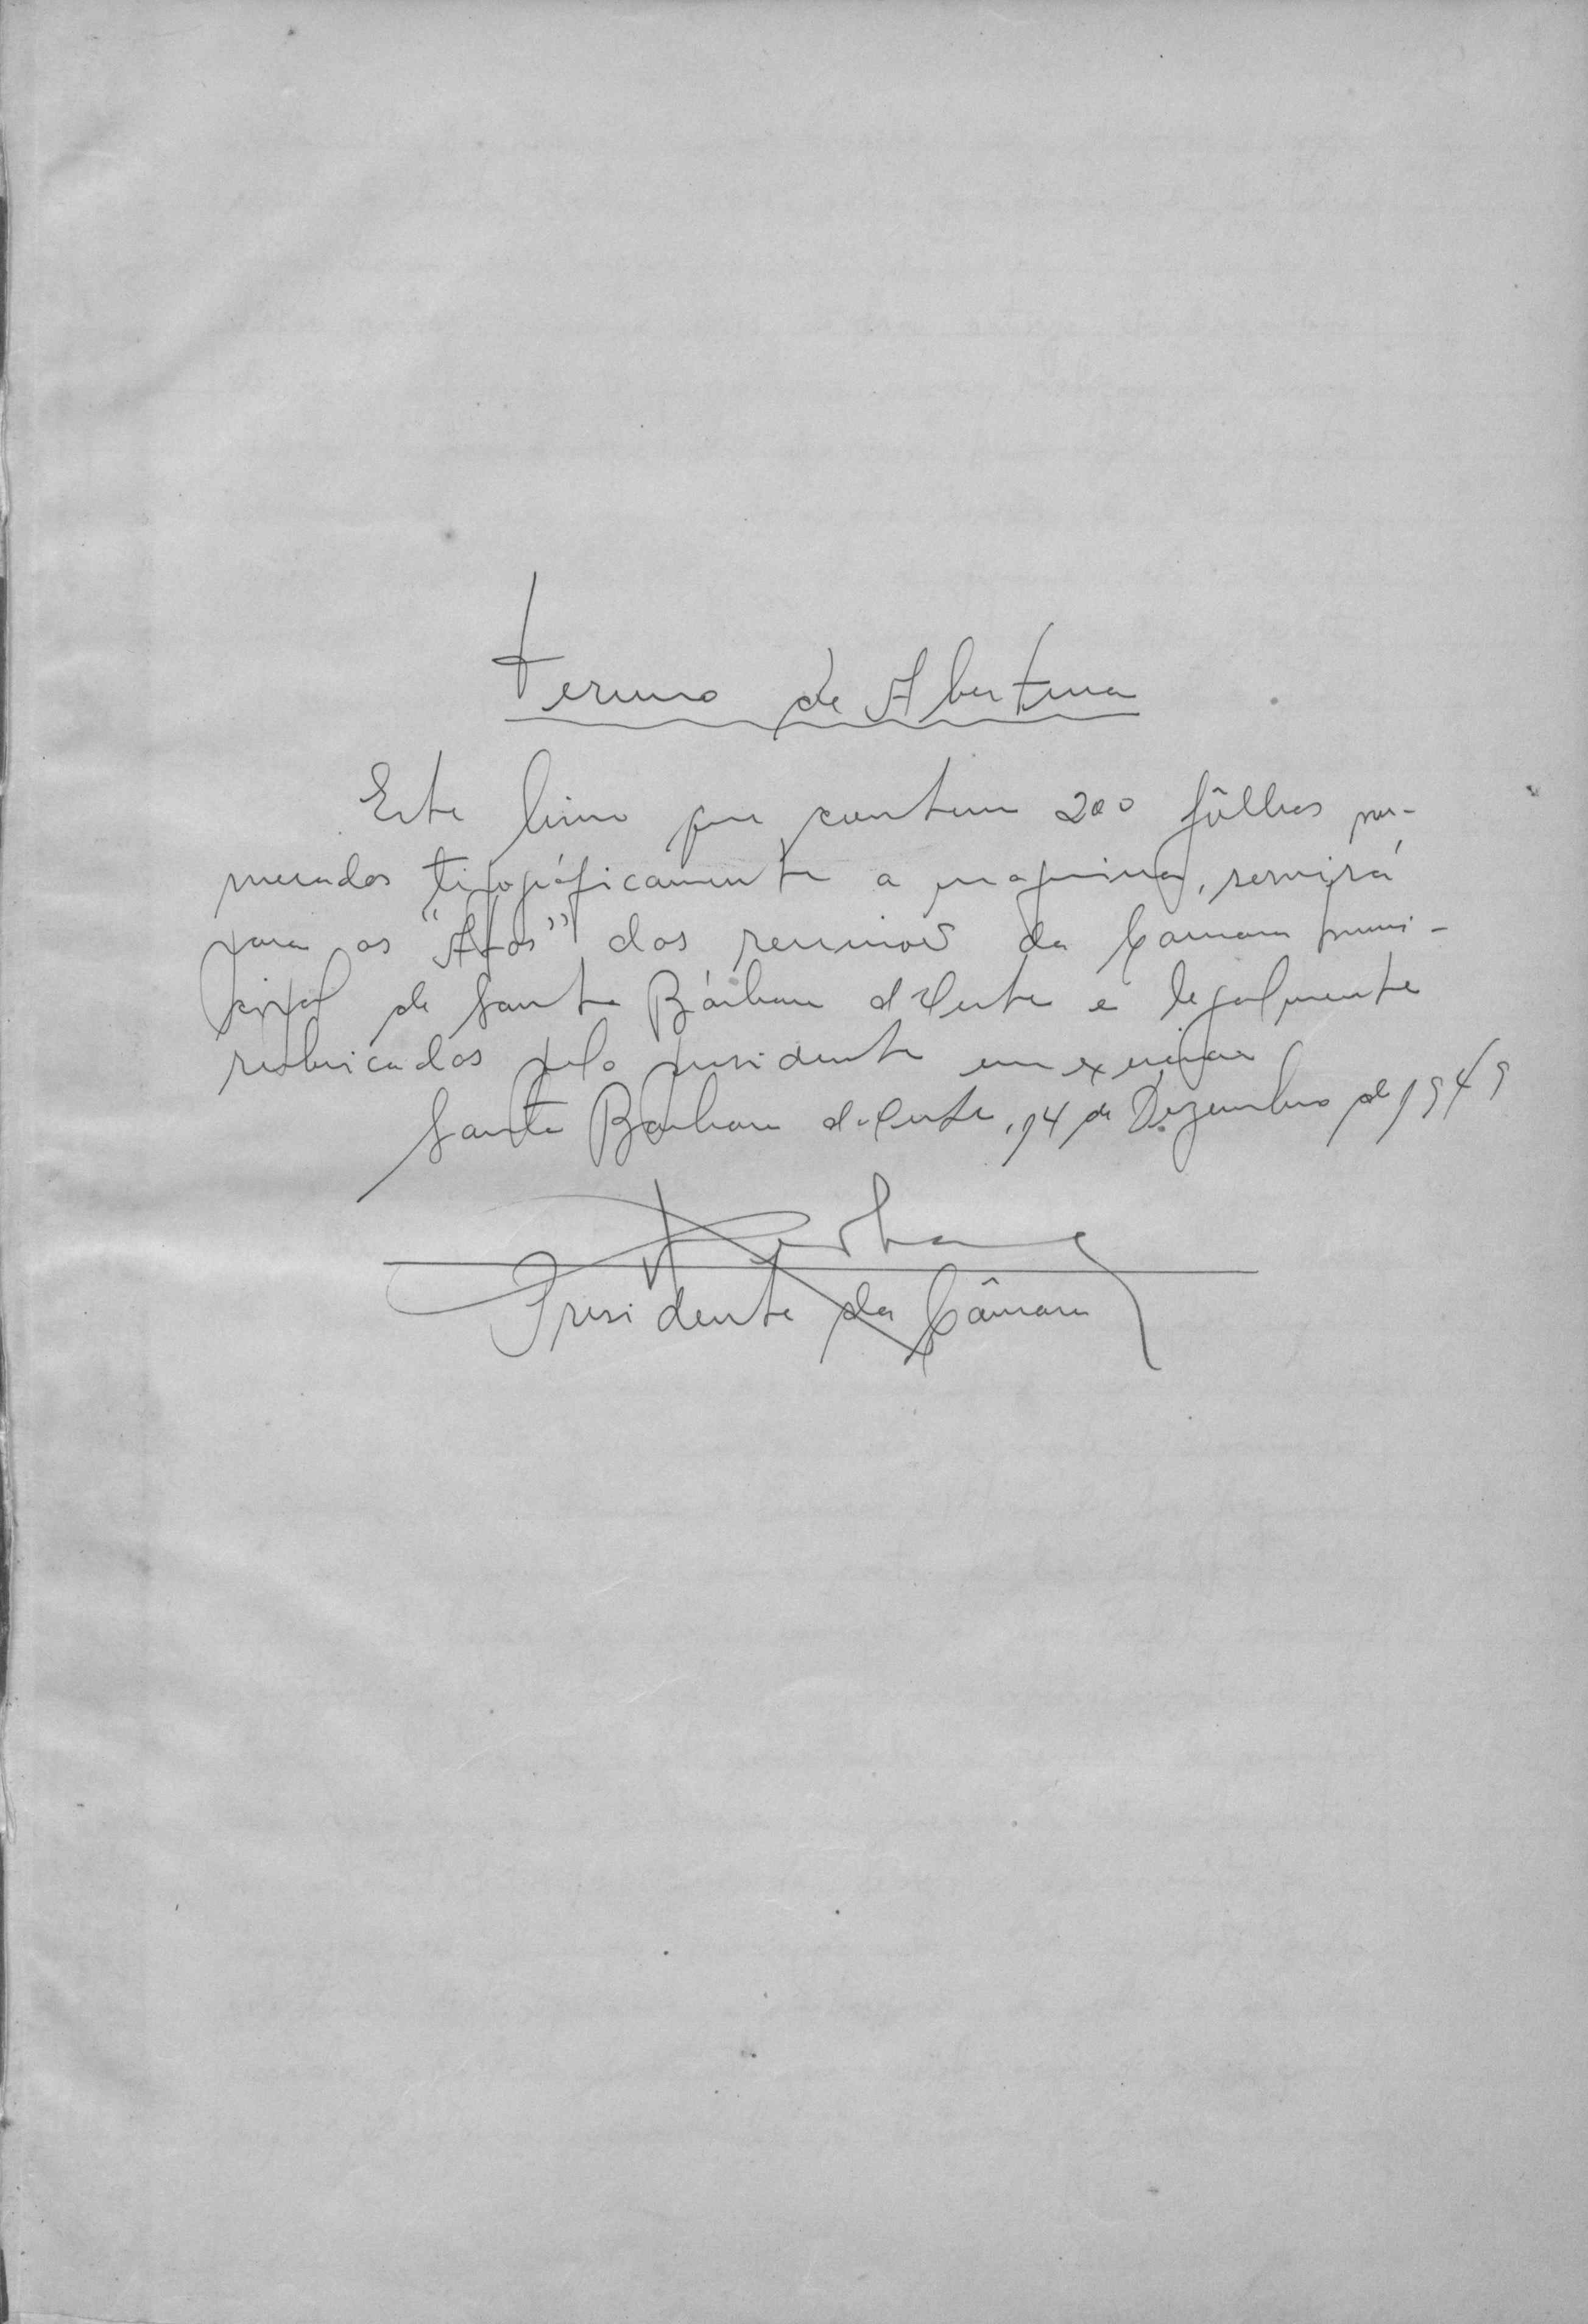 Termo de Abertura
Este livro que contem 200 fôlhas nu-
meradas tipográficamente a maquina, servirá
para as "Atas" das reuniões da Camara Muni-
cipal de Santa Bárbara d'Oeste e legalmente
rubricadas pelo presidente em exercicio
Santa Barbara d'Oeste, 14 de Dezembro de 1949
Presidente da Câmara